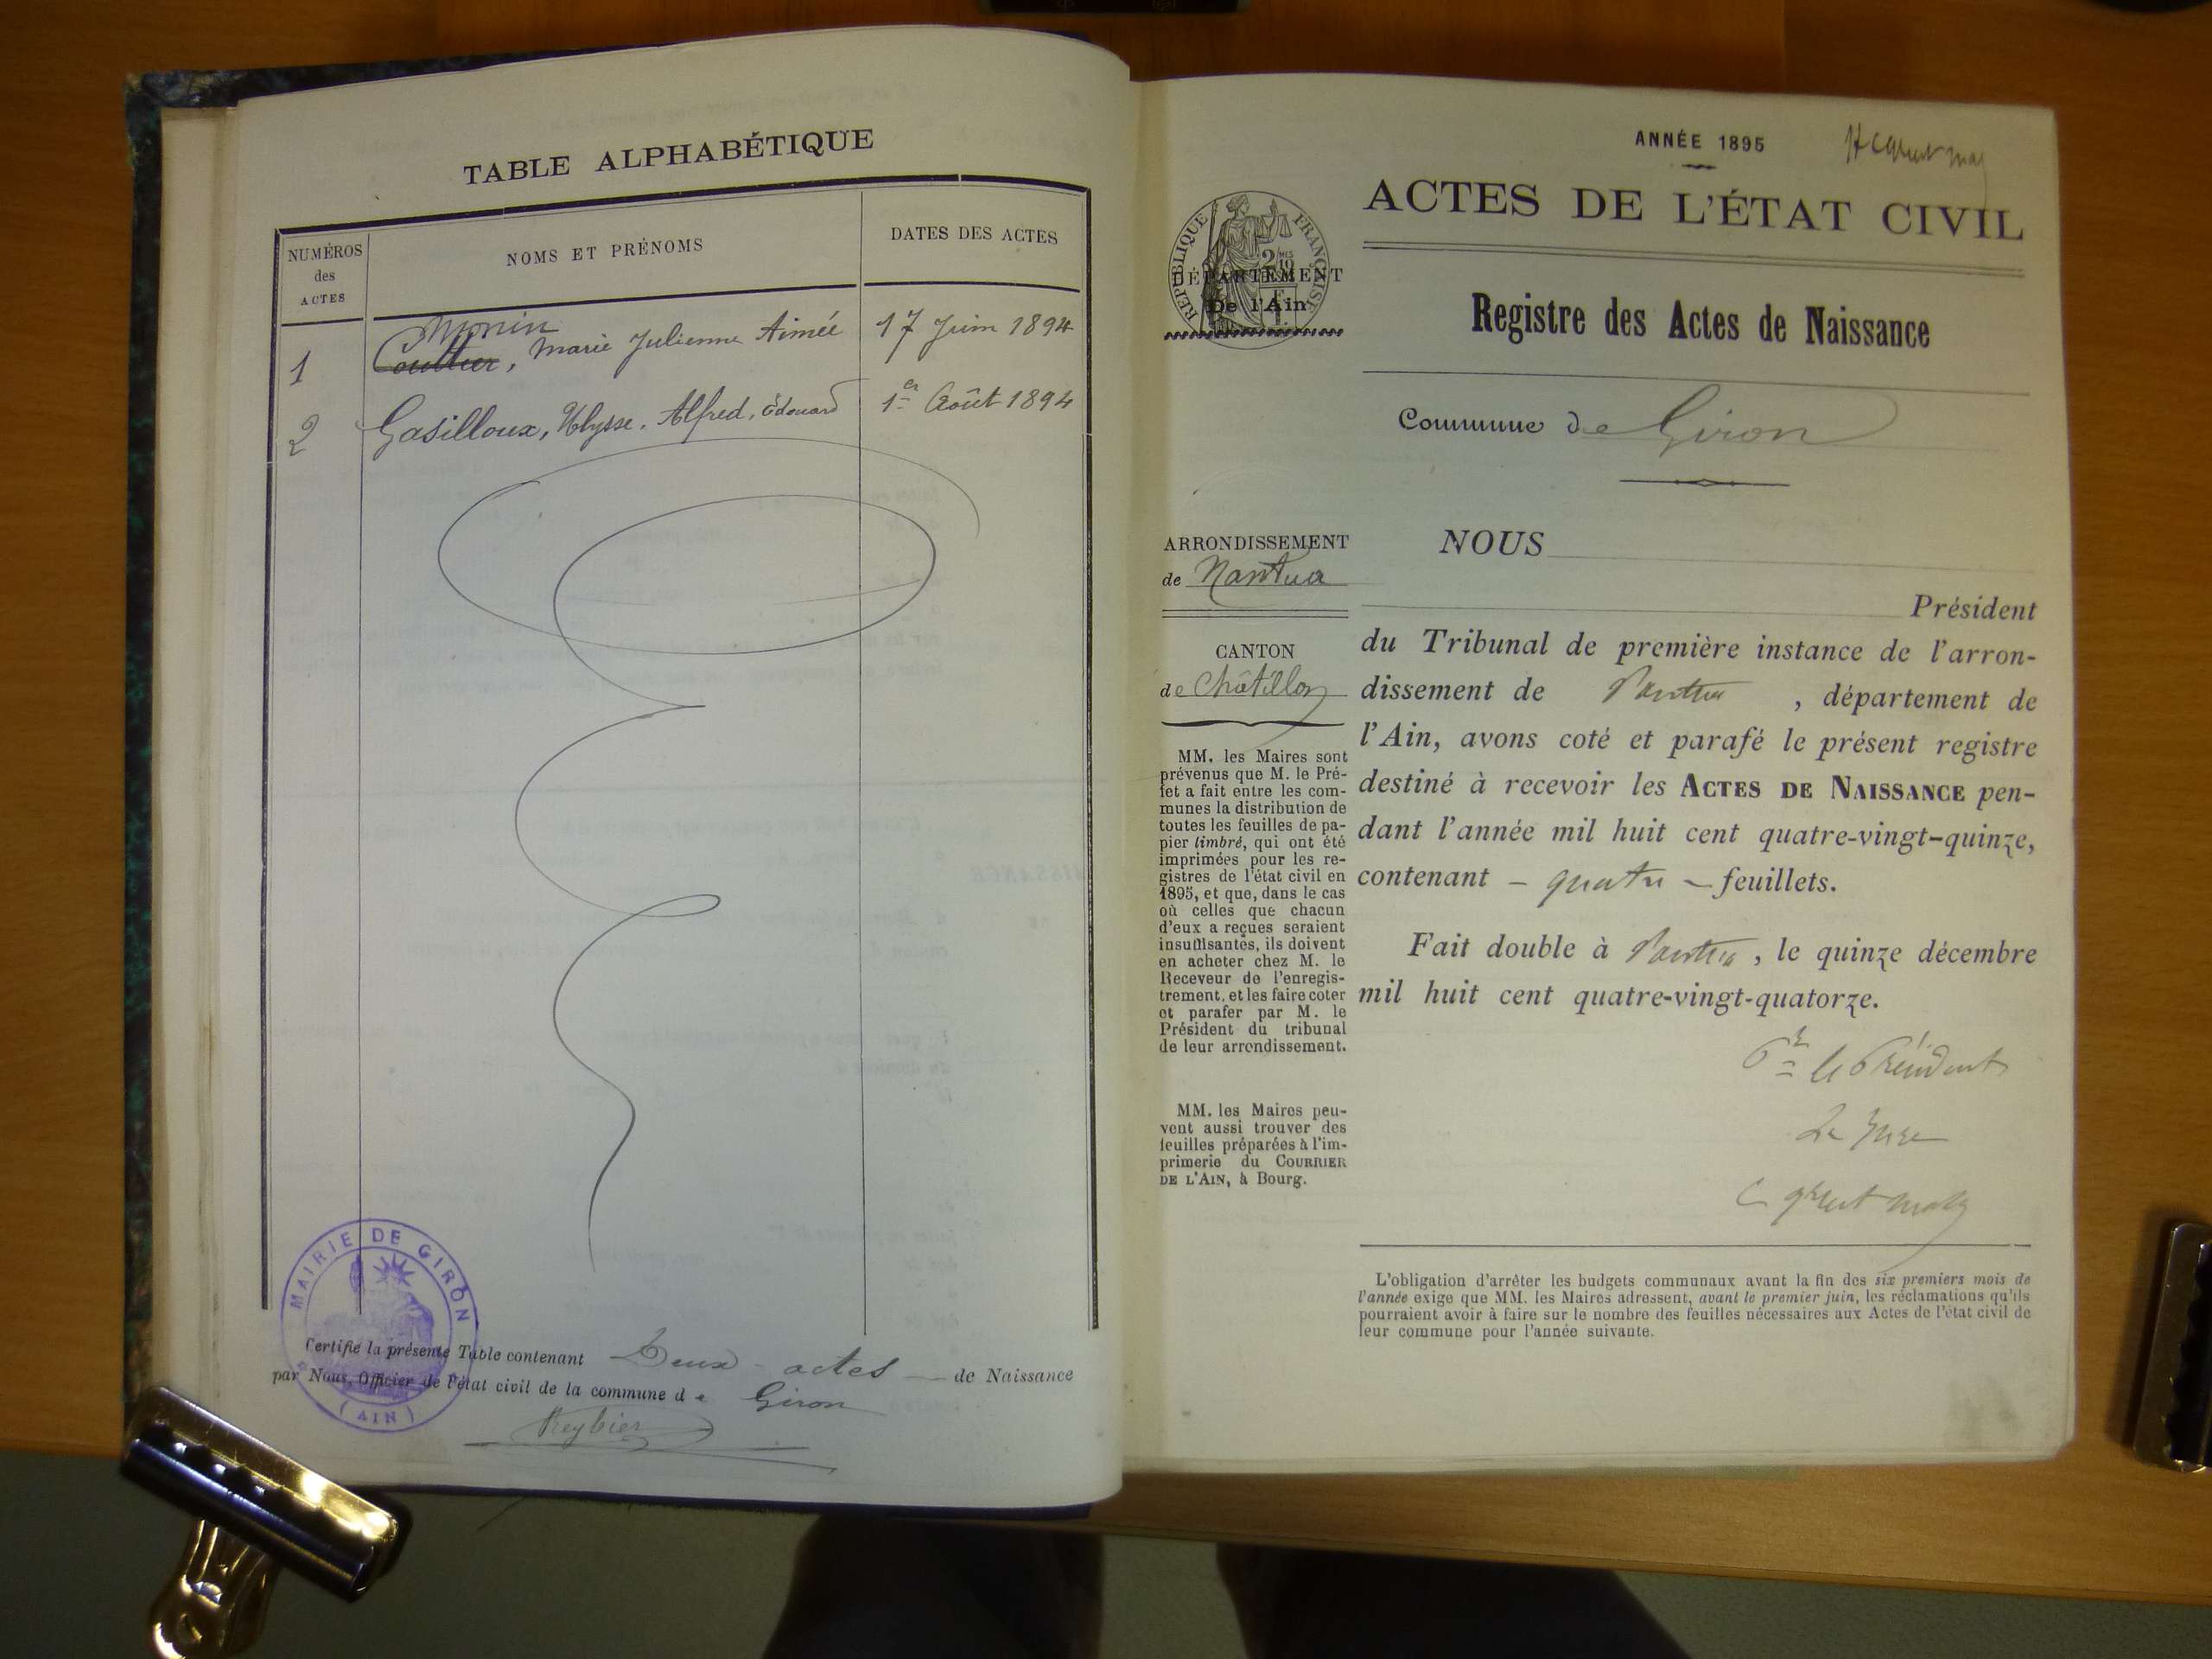 TABLE ALPHABÉTIQUE
NUMÉROS
des
ACTES
NOMS ET PRÉNOMS
DATES DES ACTES
Monin
1 Coutier, Marie Julienne Aimée 17 Juin 1894
2 Gasilloux, Ulysse, Alfred, Édouard 1er Août 1894
MAIRIE DE GIRON
(AIN)
Certifié la présente Table contenant Deux actes — de Naissance
par Nous, Officier de l'état civil de la commune de Giron
Reybier
ANNÉE 1895
ACTES DE L'ÉTAT CIVIL
RÉPUBLIQUE FRANÇAISE
DÉPARTEMENT
De l'Ain
Registre des Actes de Naissance
Commune de Giron
ARRONDISSEMENT
de Nantua
CANTON
de Châtillon
MM. les Maires sont
prévenus que M. le Pré-
fet a fait entre les com-
munes la distribution de
toutes les feuilles de pa-
pier timbré, qui ont été
imprimées pour les re-
gistres de l'état civil en
1895, et que, dans le cas
où celles que chacun
d'eux a reçues seraient
insuffisantes, ils doivent
en acheter chez M. le
Receveur de l'enregis-
trement, et les faire coter
et parafer par M. le
Président du tribunal
de leur arrondissement.
MM. les Maires peu-
vent aussi trouver des
feuilles préparées à l'im-
primerie du COURRIER
DE L'AIN, à Bourg.
NOUS
Président
du Tribunal de première instance de l'arron-
dissement de Nantua , département de
l'Ain, avons coté et parafé le présent registre
destiné à recevoir les ACTES DE NAISSANCE pen-
dant l'année mil huit cent quatre-vingt-quinze,
contenant – quatre – feuillets.
Fait double à Nantua, le quinze décembre
mil huit cent quatre-vingt-quatorze.
Pr le Président
Le Juge
L'obligation d'arrêter les budgets communaux avant la fin des six premiers mois de
l'année exige que MM. les Maires adressent, avant le premier juin, les réclamations qu'ils
pourraient avoir à faire sur le nombre des feuilles nécessaires aux Actes de l'état civil de
leur commune pour l'année suivante.